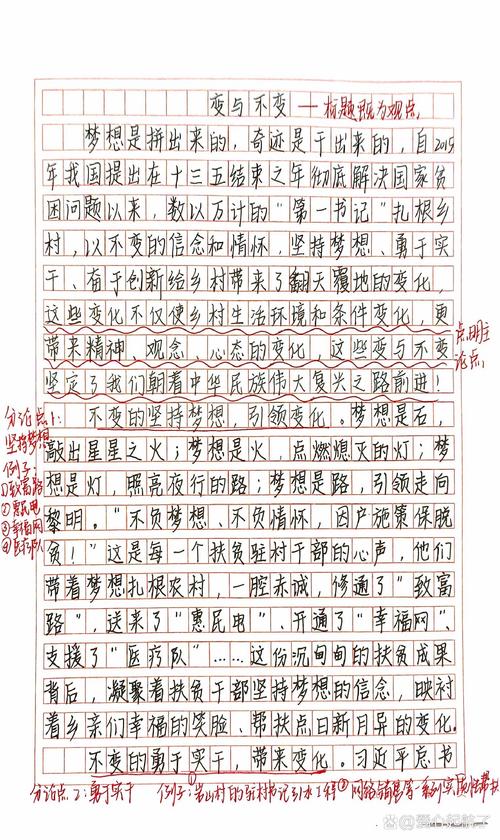 变与不变 — 标题既为观点
梦想是拼出来的,奇迹是干出来的,自2015
年我国提出在十三五结束之年彻底解决国家贫
困问题以来,数以万计的“第一书记”扎根乡
村,以不变的信念和情怀,坚持梦想、勇于实
干、奋于创新给乡村带来了翻天覆地的变化,
这些变化不仅使乡村生活环境和条件变化,更
带来精神、观念、心态的变化,这些变与不变
坚定了我们朝着中华民族伟大复兴之路前进!
点明主
论点
不变的坚持梦想,引领变化。梦想是石,
敲出星星之火;梦想是火,点燃熄灭的灯;梦
想是灯,照亮夜行的路;梦想是路,引领走向
黎明。“不负梦想、不负情怀,因户施策保脱
贫!”这是每一个扶贫驻村干部的心声,他们
带着梦想扎根农村,一腔赤诚,修通了“致富
路”,送来了“惠民电”、开通了“幸福网”、
支援了“医疗队”……这份沉甸甸的扶贫成果
背后,凝聚着扶贫干部坚持梦想的信念,映衬
着乡亲们幸福的笑脸、帮扶点日新月异的变化。
分论点1:
坚持梦想
例子:
①致富路
②惠民电
③幸福网
④医疗队
不变的勇于实干,带来变化。习近平总书
分论点2:勇于实干 例子:①岩山村的驻村书记引水工程②网络销售等一系列实质性帮扶
@爱心纪梓了